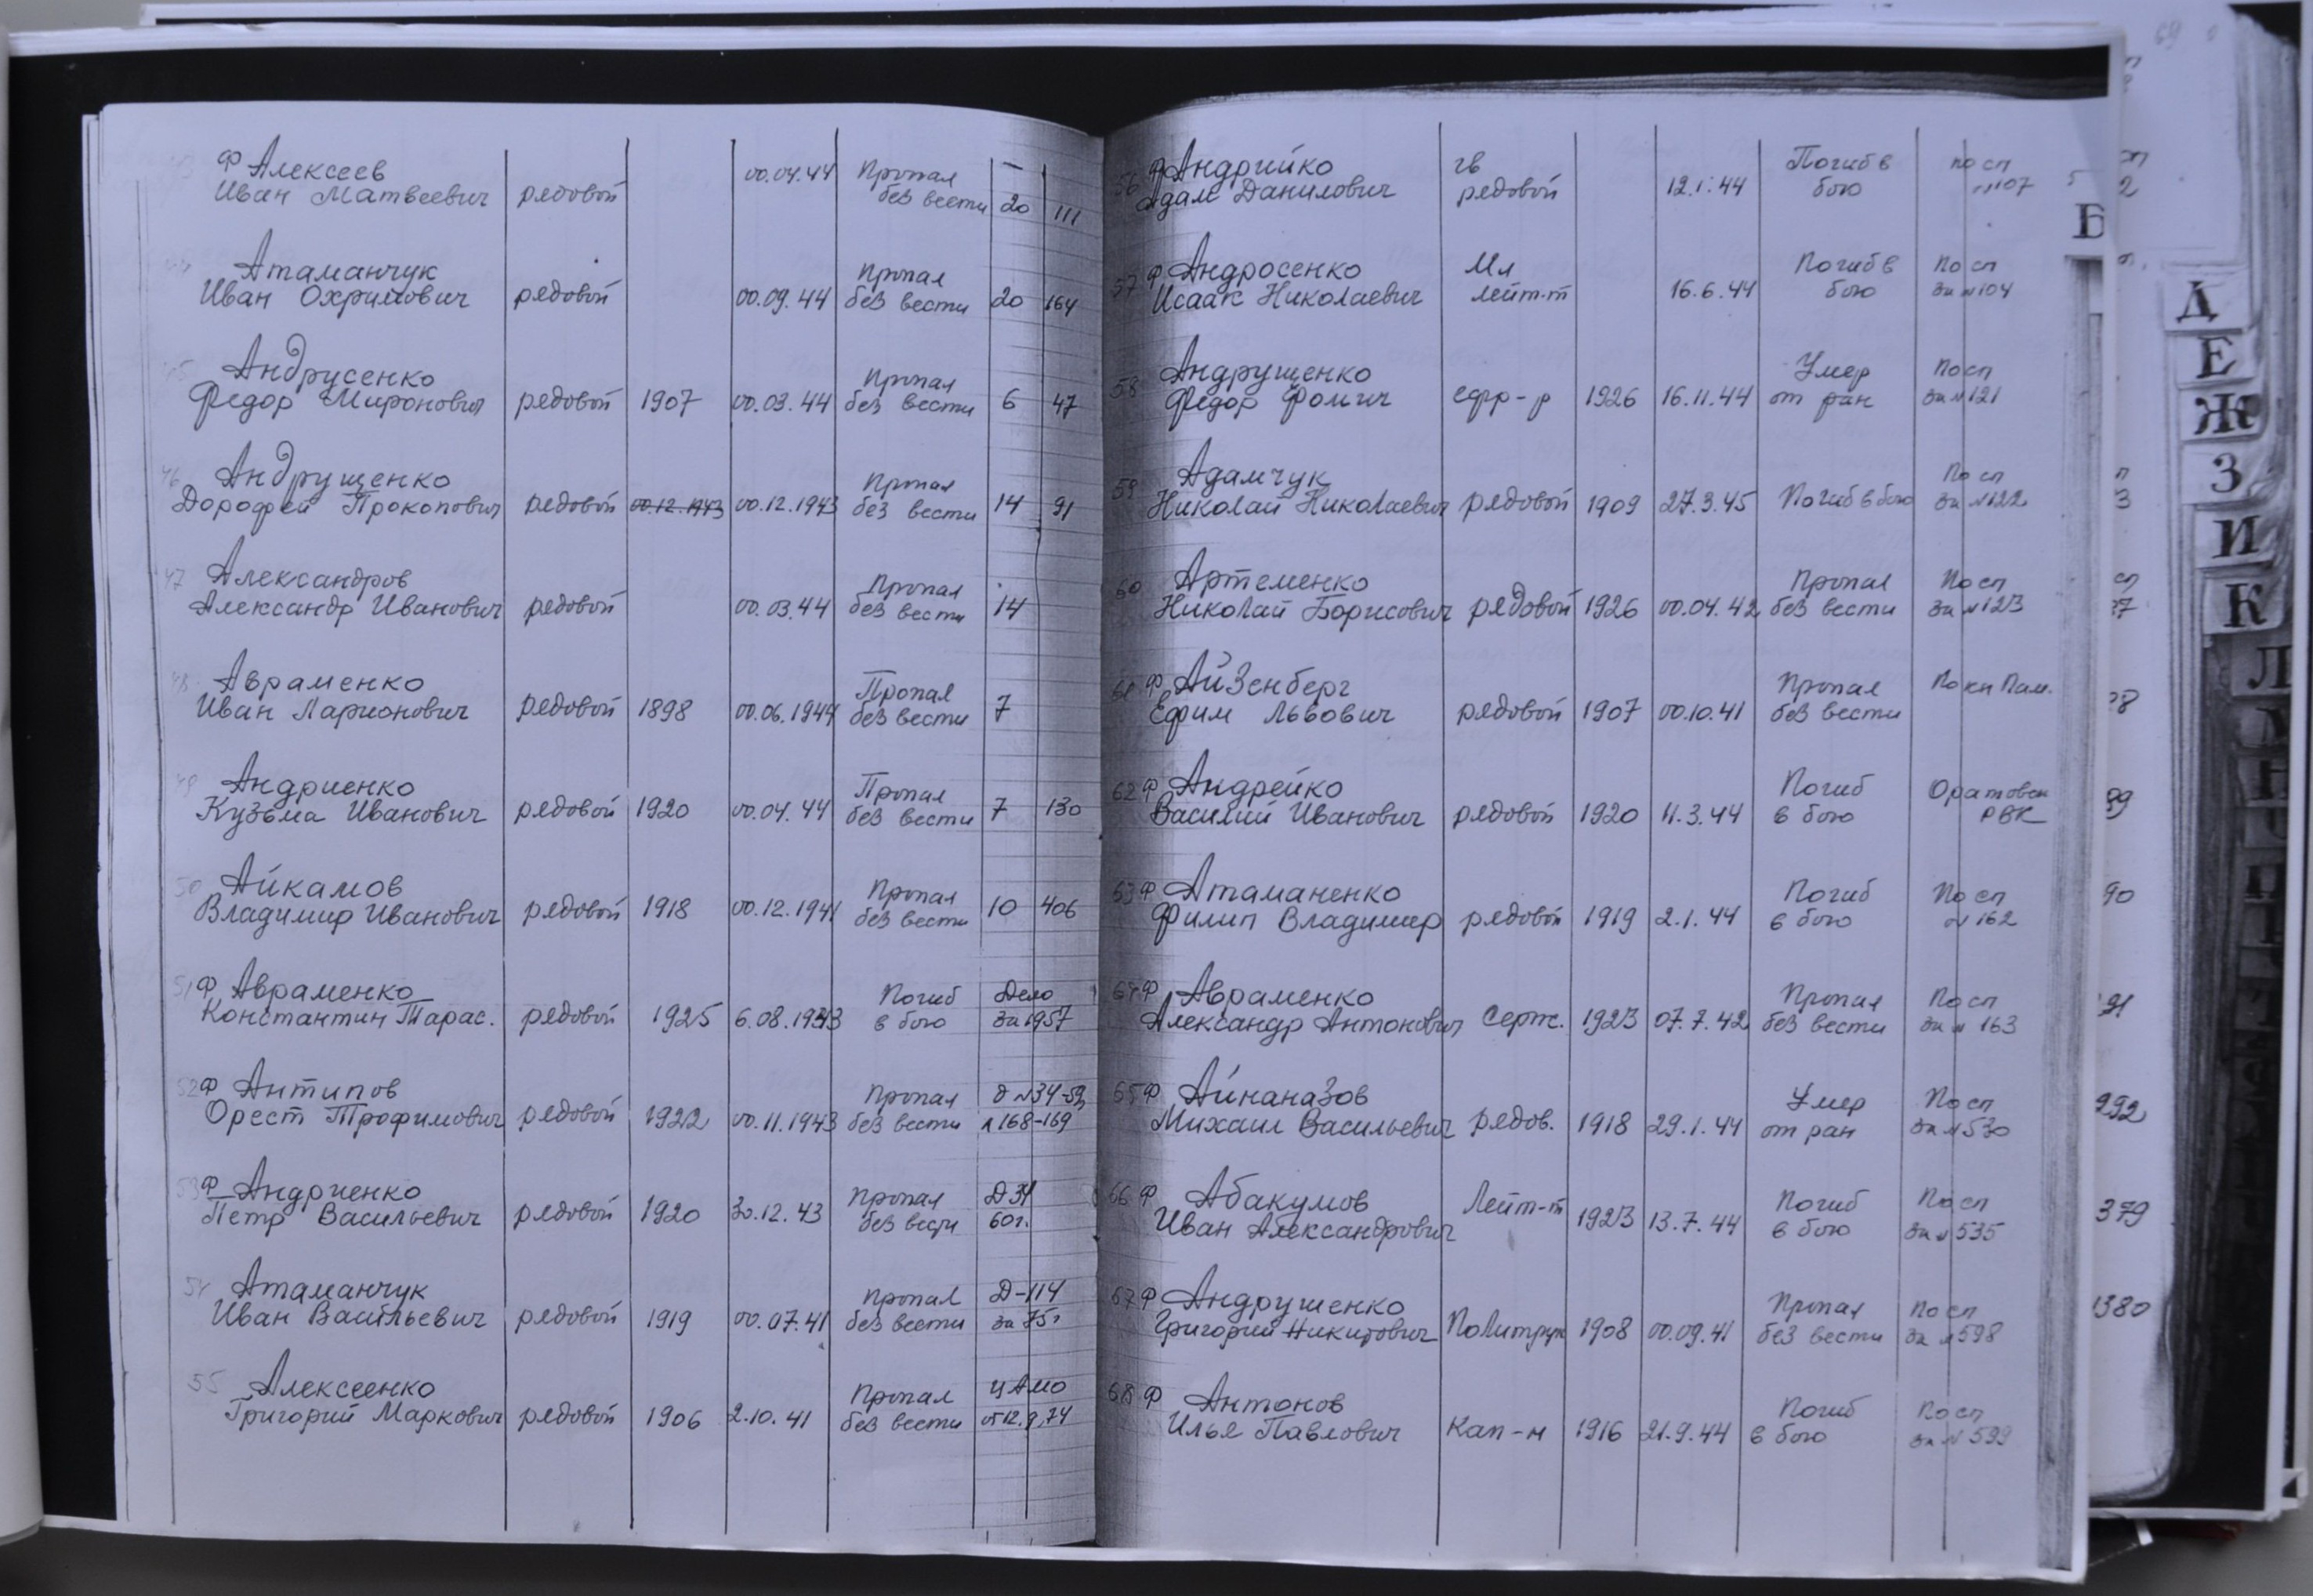 Ф Алексеев 00.04.44 Пропал –
Иван Матвеевич рядовой без вести 20 111
Атаманчук Пропал
Иван Охримович рядовой 00.09.44 без вести 20 164
Андрусенко Пропал
Федор Миронович рядовой 1907 00.03.44 без вести 6 47
46 Андрущенко Пропал
Дорофей Прокопович рядовой 00.12.1943 00.12.1943 без вести 14 91
47 Александров Пропал
Александр Иванович рядовой 00.03.44 без вести 14
48 Авраменко Пропал
Иван Ларионович рядовой 1898 00.06.1944 без вести 7
49 Андриенко Пропал
Кузьма Иванович рядовой 1920 00.04.44 без вести 7 130
50 Айкамов Пропал
Владимир Иванович рядовой 1918 00.12.1941 без вести 10 406
51 Ф Авраменко Погиб Дело
Константин Тарас. рядовой 1925 6.08.1943 в бою за 1957
52 Ф Антипов Пропал д №34-59
Орест Трофимович рядовой 1922 00.11.1943 без вести л 168-169
53 Ф Андриенко Пропал Д 34
Петр Васильевич рядовой 1920 30.12.43 без вести 60г.
54 Атаманчук Пропал Д-114
Иван Васильевич рядовой 1919 00.07.41 без вести за 75г
55 Алексеенко Пропал ЦАМО
Григорий Маркович рядовой 1906 2.10.41 без вести от 12.9.74
56 Ф Андрийко гв Погиб в по сп
Адам Данилович рядовой 12.1.44 бою №107
57 Ф Андросенко Мл Погиб в По сп
Исаак Николаевич лейт-т 16.6.44 бою за №104
58 Андрущенко Умер По сп
Федор Фомич ефр-р 1926 16.11.44 от ран за №121
59 Адамчук По сп
Николай Николаевич рядовой 1909 27.3.45 Погиб в бою за №122
60 Артеменко Пропал По сп
Николай Борисович рядовой 1926 00.04.42 без вести за №123
61 Ф Айзенберг Пропал По кн Пам.
Ефим Львович рядовой 1907 00.10.41 без вести
62 Ф Андрейко Погиб Оратовск
Василий Иванович рядовой 1920 11.3.44 в бою РВК
63 Ф Атаманенко Погиб По сп
Филип Владимир рядовой 1919 2.1.44 в бою № 162
64 Ф Авраменко Пропал По сп
Александр Антонович Серж. 1923 07.7.42 без вести за № 163
65 Ф Айнаназов Умер По сп
Михаил Васильевич рядов. 1918 29.1.44 от ран за №530
66 Ф Абакумов Лейт-т Погиб По сп
Иван Александрович 1923 13.7.44 в бою за №535
67 Ф Андрушенко Пропал По сп
Григорий Никитович Политрук 1908 00.09.41 без вести за №598
68 Ф Антонов Погиб По сп
Илья Павлович Кап-н 1916 21.9.44 в бою за № 599
Б
Д
Е
Ж
З
И
К
Л
90
91
292
379
1380